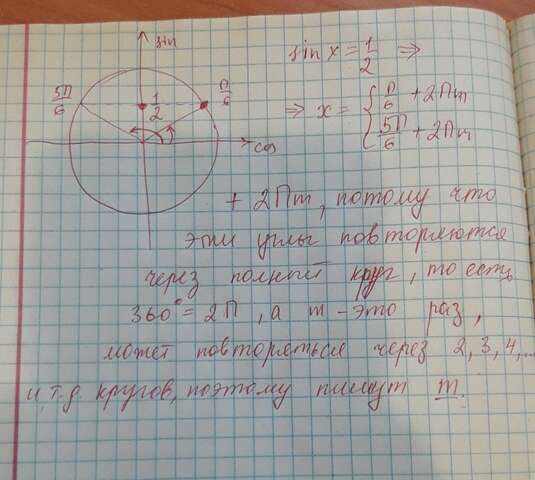 sin
sin x = 1/2 ⇒
5П/6
1/2
П/6
⇒ x = { П/6 + 2Пm
5П/6 + 2Пm
cos
+ 2Пm, потому что
эти углы повторяются
через полный круг, то есть
360° = 2П, а m - это раз,
может повторяться через 2, 3, 4,...
и т.д. кругов, поэтому пишут m.